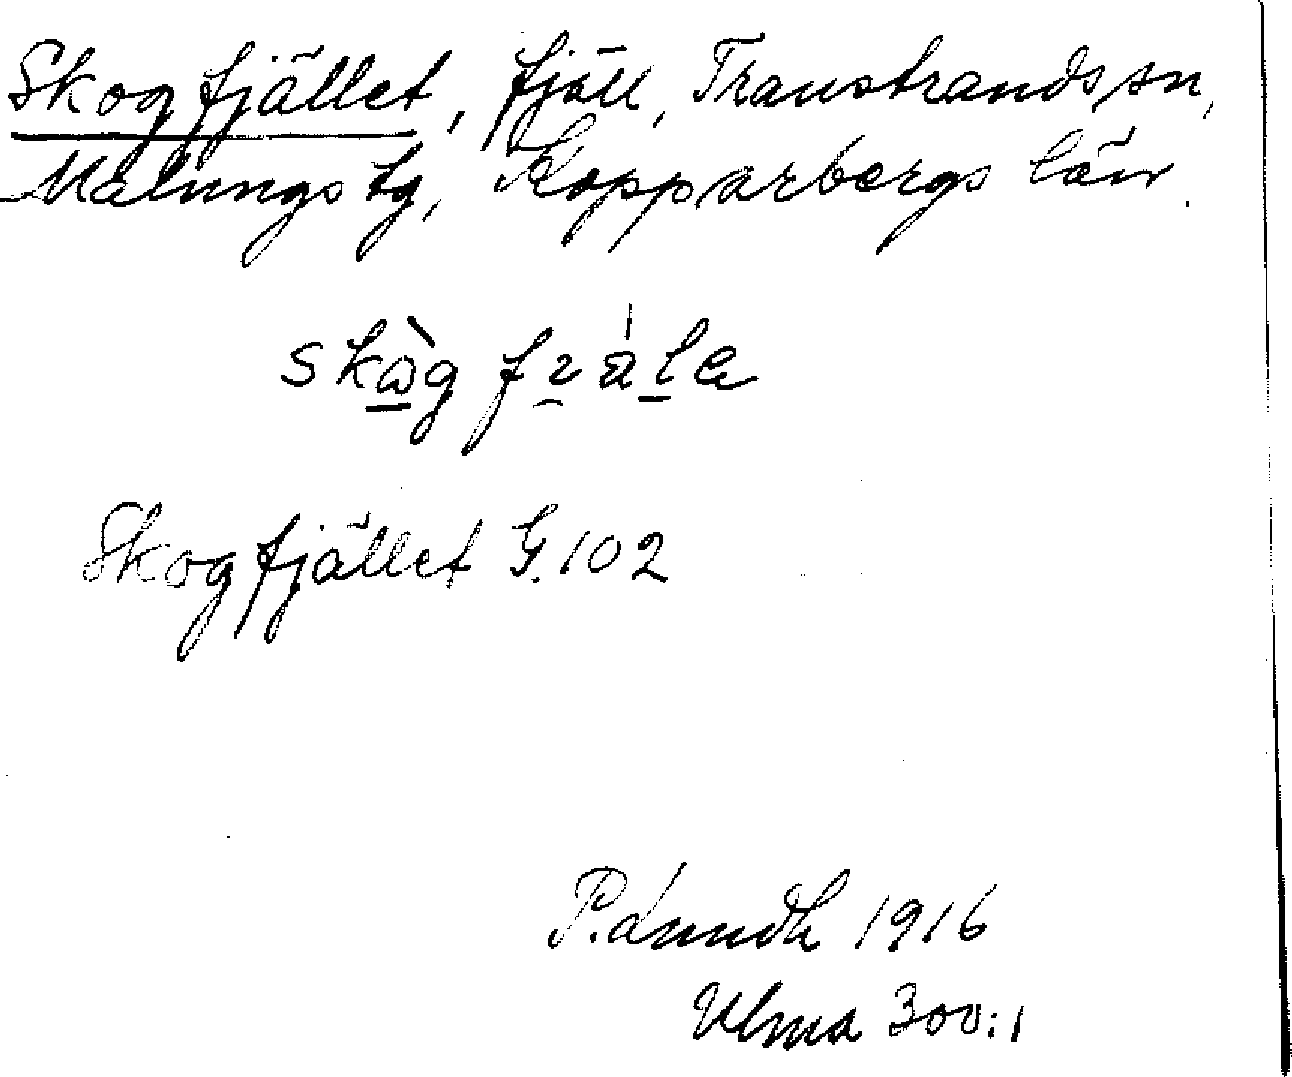 Skogfjället, fjäll, Transtrands sn,
Malungs tg, Kopparbergs län.
Skogfjället G.102
P. Lundh 1916
Ulma 300:1